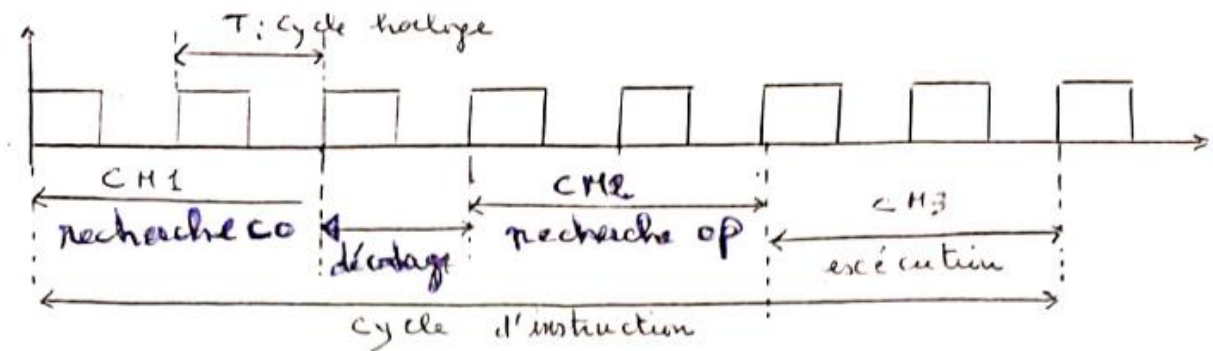 T: Cycle horloge
CM1
CM2
CM3
recherche CO
décodage
recherche op
exécution
Cycle d'instruction